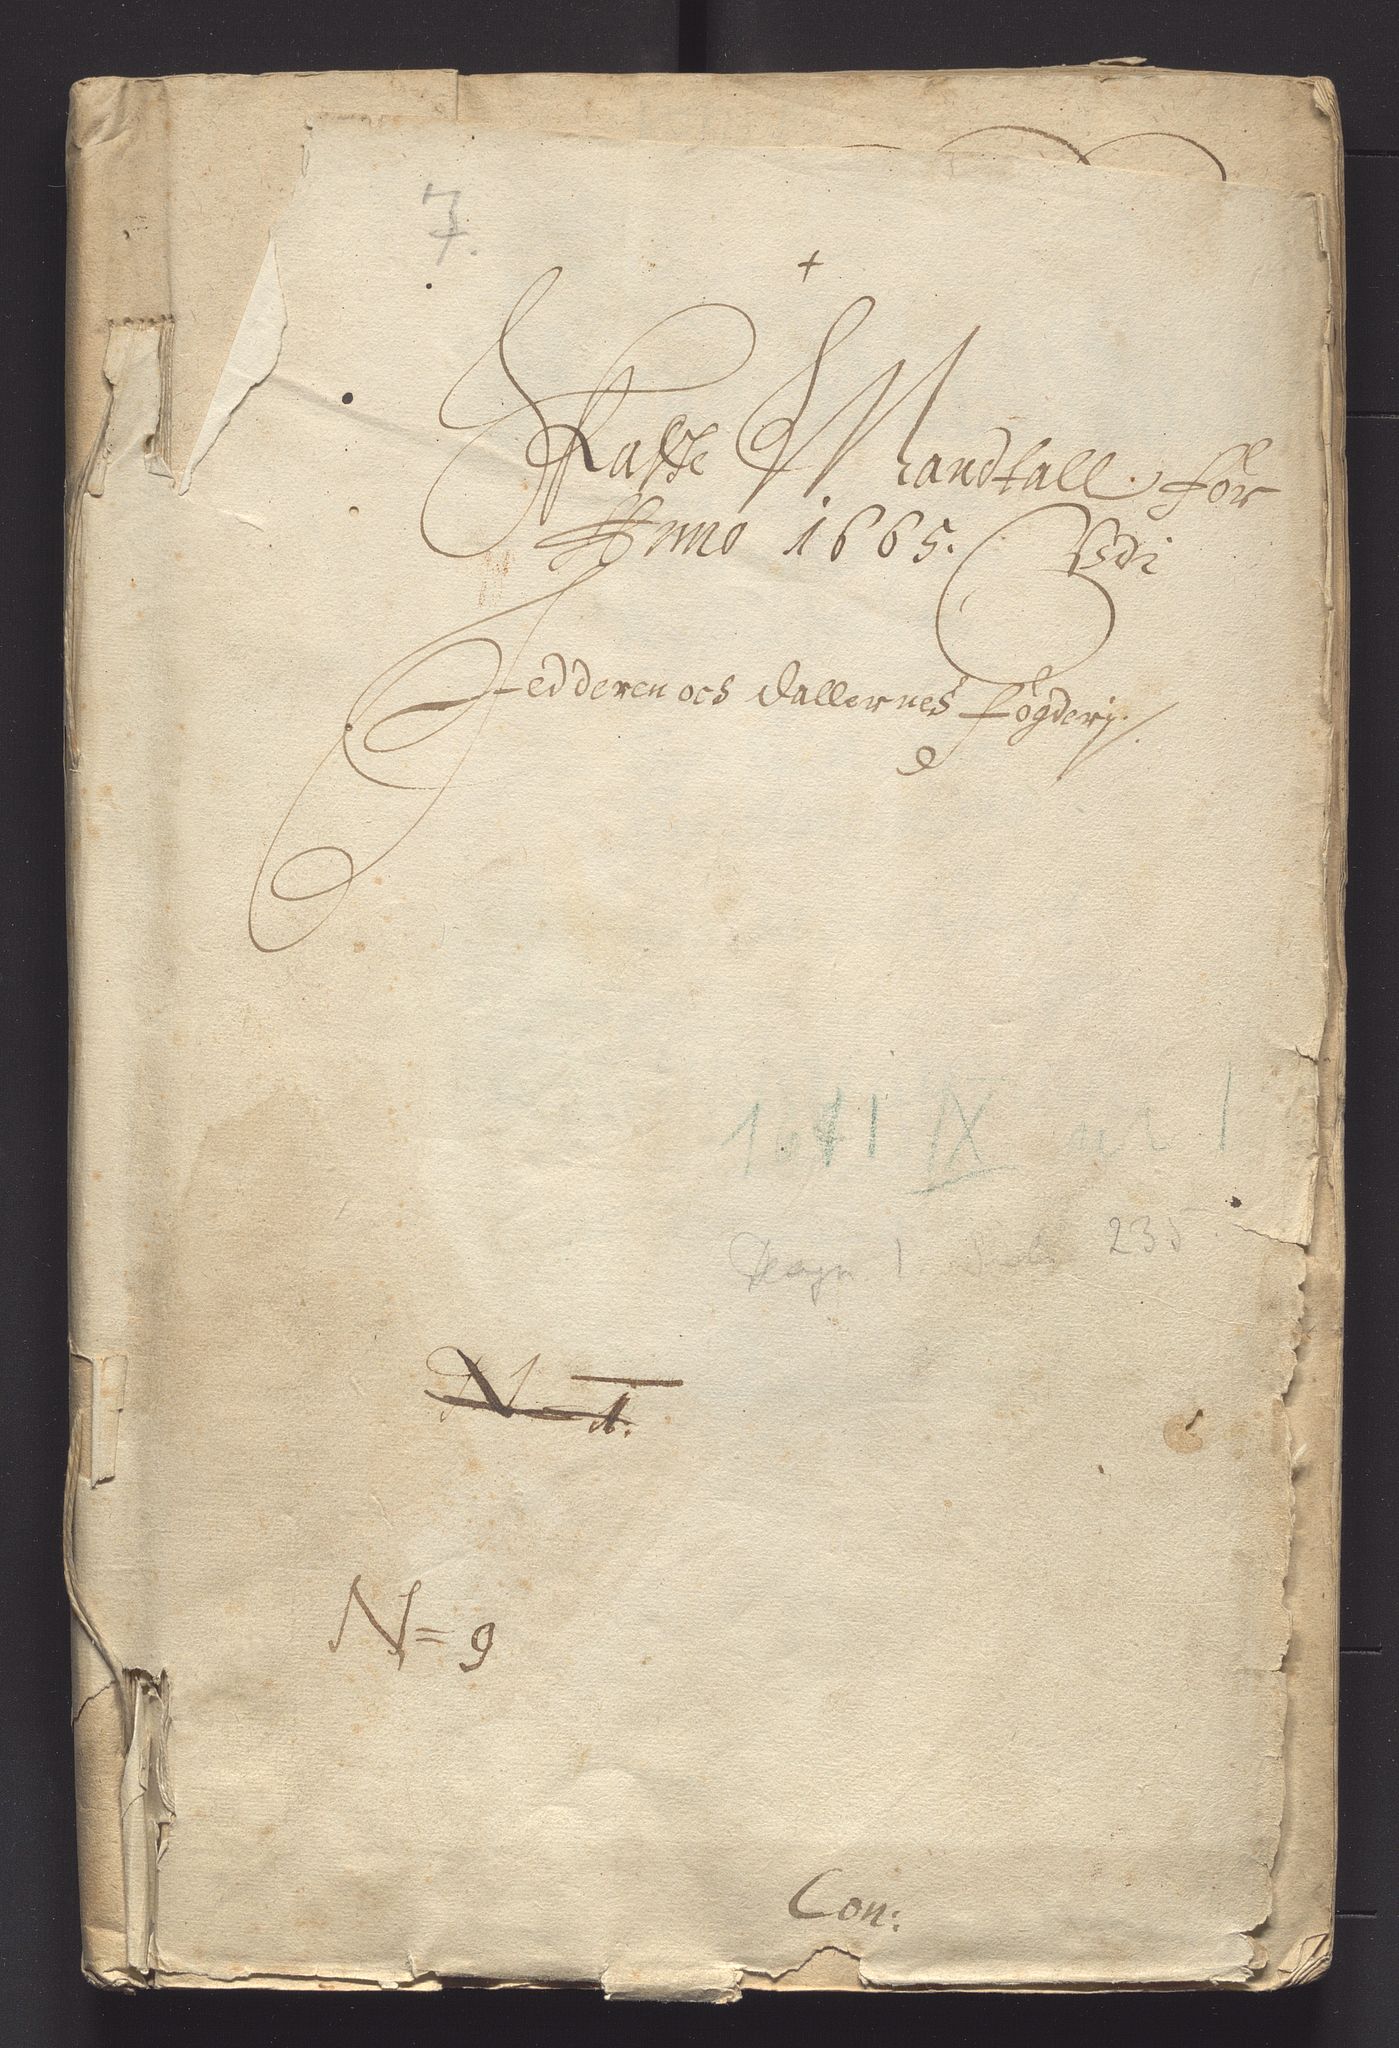 7.
+
Skatte Mandtall for
Anno 1665. Vdi
Jedderen och Dallernes fögderj.
IX nr 1
235
N
N= 9
Con: